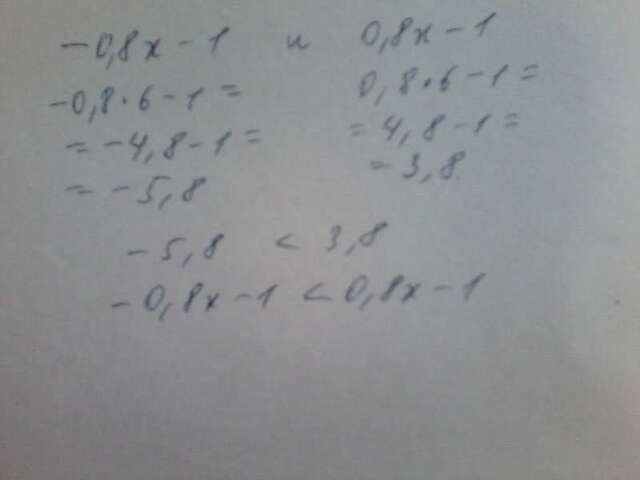 -0,8x-1 и 0,8x-1
-0,8·6-1= 0,8·6-1=
=-4,8-1= =4,8-1=
=-5,8 =3,8
-5,8 < 3,8
-0,8x-1 < 0,8x-1